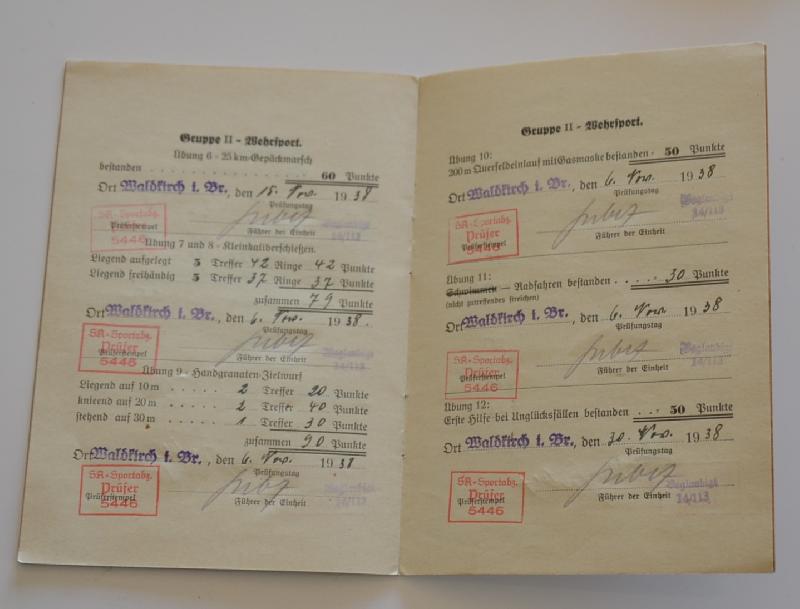 Gruppe II - Wehrsport.
Übung 6 - 25 km-Gepäckmarsch
bestanden . . . . . . . . . . . . . . . 60 Punkte
Ort Waldkirch i. Br., den 15. Nov. 1938
Prüfungstag
SA-Sportabz.
Prüfer
Prüferstempel
5446
Führer der Einheit
Beglaubigt
14/113
Übung 7 und 8 - Kleinkaliberschießen.
Liegend aufgelegt 5 Treffer 42 Ringe 42 Punkte
Liegend freihändig 5 Treffer 37 Ringe 37 Punkte
zusammen 79 Punkte
Ort Waldkirch i. Br., den 6. Nov. 1938.
Prüfungstag
SA-Sportabz.
Prüfer
Prüferstempel
5446
Führer der Einheit
Beglaubigt
14/113
Übung 9 - Handgranaten-Zielwurf
Liegend auf 10 m . . . . . . 2 Treffer 20 Punkte
knieend auf 20 m . . . . . . 2 Treffer 40 Punkte
stehend auf 30 m . . . . . . 1 Treffer 30 Punkte
zusammen 90 Punkte
Ort Waldkirch i. Br., den 6. Nov. 1938
Prüfungstag
SA-Sportabz.
Prüfer
Prüferstempel
5446
Führer der Einheit
Beglaubigt
14/113
Gruppe II - Wehrsport.
Übung 10:
200 m Querfeldeinlauf mit Gasmaske bestanden - 50 Punkte
Ort Waldkirch i. Br., den 6. Nov. 1938
Prüfungstag
SA-Sportabz.
Prüfer
Prüferstempel
5446
Führer der Einheit
Beglaubigt
14/113
Übung 11:
Schwimmen — Radfahren bestanden . . . . 30 Punkte
(nicht zutreffendes streichen)
Ort Waldkirch i. Br., den 6. Nov. 1938
Prüfungstag
SA-Sportabz.
Prüfer
Prüferstempel
5446
Führer der Einheit
Beglaubigt
14/113
Übung 12:
Erste Hilfe bei Unglücksfällen bestanden . . . 50 Punkte
Ort Waldkirch i. Br., den 20. Nov. 1938
Prüfungstag
SA-Sportabz.
Prüfer
Prüferstempel
5446
Führer der Einheit
Beglaubigt
14/113